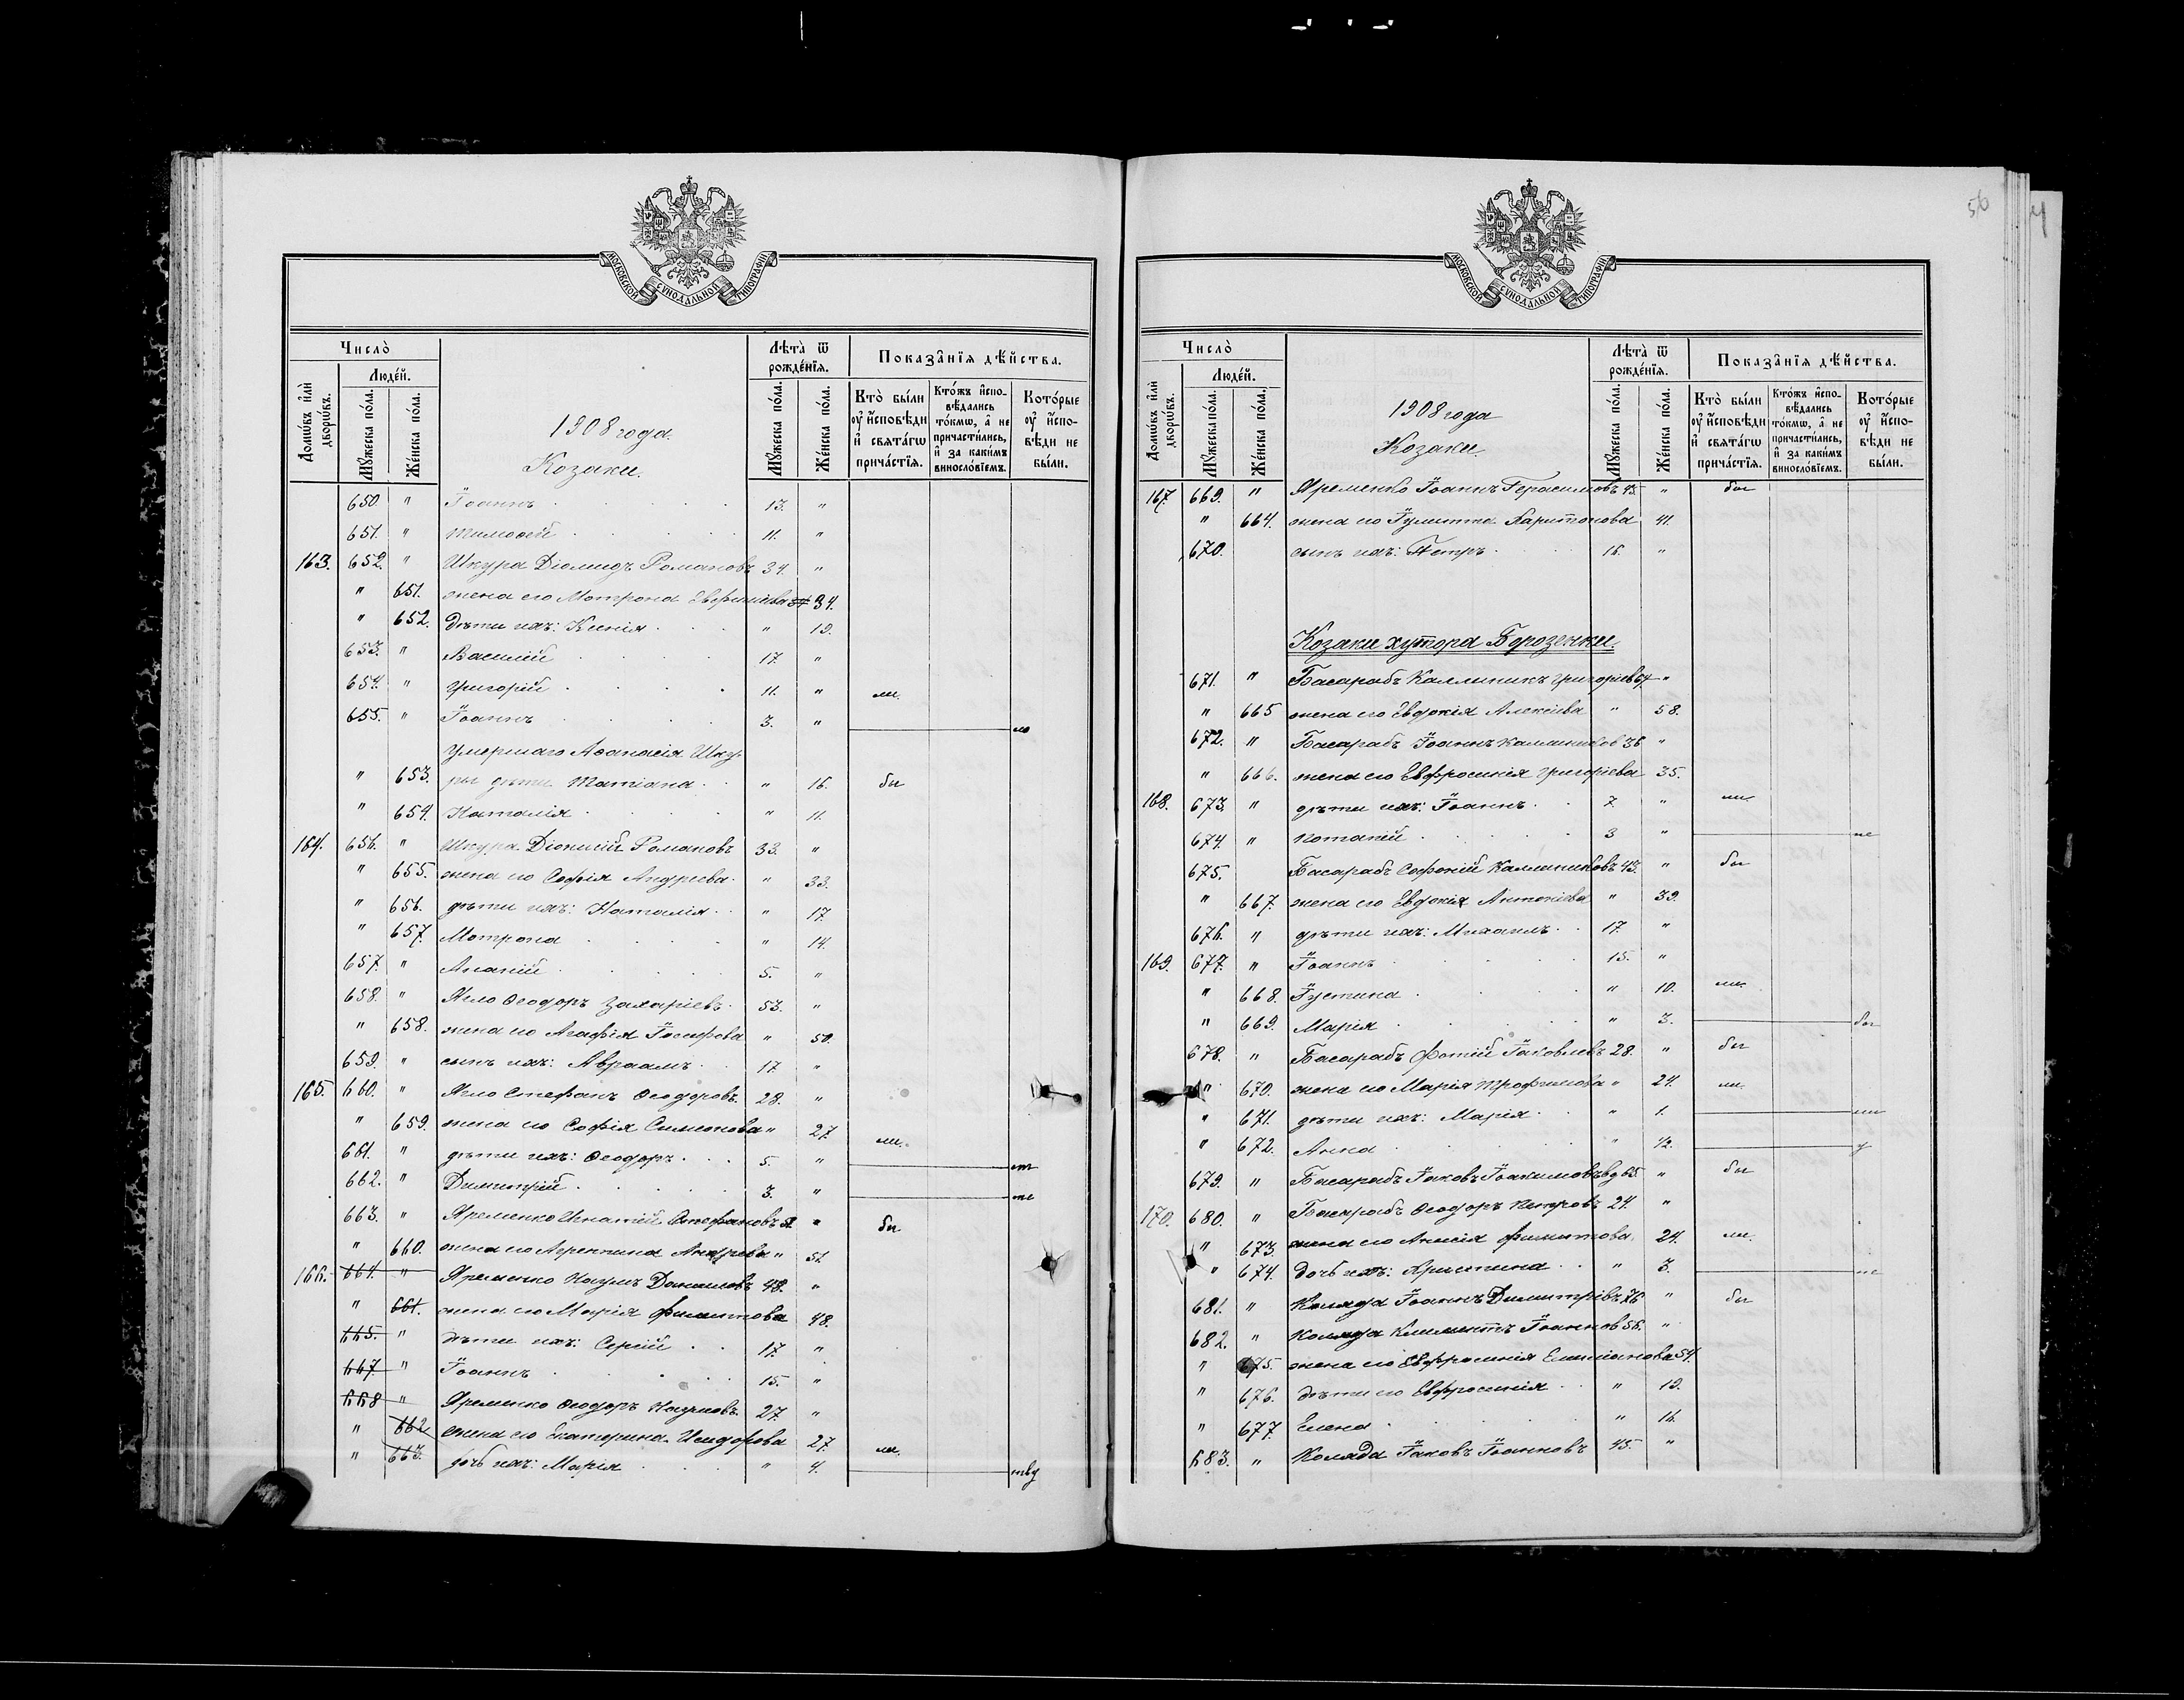 56
МОСКОВСКОЙ СУНОДАЛЬНОЙ ТИПОГРАФІИ
Число̀
Людéй.
Домѡ́въ и҆лѝ дворѡ́въ.
Мꙋ́жеска по́ла.
Же́нска по́ла.
1908 года.
Козаки.
Лѣта̀ ѿ рожде́нїѧ.
Мꙋ́жеска по́ла.
Же́нска по́ла.
Показа̑нїѧ дѣ́йства.
Кто̀ бы́ли ᲂу҆ и҆́сповѣди и҆ свѧта́гѡ прича́стїѧ.
Кто́жъ и҆спо-вѣ́дались то́кмѡ, а҆ не причасти́лись, и҆ за каки́мъ винослóвїемъ.
Кото́рые ᲂу҆ и҆́спо-вѣди не бы́ли.
650. " Іоаннъ 13. "
651. " Тимоѳей 11. "
163. 652. " Шкура Діомидъ Романовъ 34. "
" 651. жена его Мотрона 34.
" 652. дѣти ихъ: Ксенія " 19.
653. " Василій 17. "
654. " Григорій 11. " ли
655. " Іоаннъ 3. " но
умершаго Аѳанасія Шку-
" 653. ры дѣти Татіана " 16. бы
" 654. Наталія " 11.
164. 656. " Шкура Діонисій Романовъ 33. "
" 655. жена его Софія Андреева " 33.
" 656. дѣти ихъ: Наталія " 17.
" 657. Мотрона " 14.
657. " Ананій 5. "
658. " Ягло Ѳеодоръ Захаріевъ 53. "
" 658. жена его Агафія Іосифова " 50.
659. " сынъ ихъ: Авраамъ 17. "
165. 660. " Ягло Стефанъ Ѳеодоровъ 28. "
" 659. жена его Софія Симеонова " 27. ли.
661. " дѣти ихъ: Ѳеодоръ 5. "
662. " Димитрій 3. "
663. " Яременко Игнатій Стефановъ "  бы
" 660. жена его Агрепина Андреева " 51.
166. 664. " Яременко Наумъ Даниловъ 48. "
" 661. жена его Марія Филиппова 48.
665. " дѣти ихъ: Сергій 17. "
667. " Іоаннъ 15. "
668 " Яременко Ѳеодоръ Наумовъ 27. "
" 662 жена его Екатерина Исидорова 27. ли.
" 663. дочь ихъ: Марія " 4.
МОСКОВСКОЙ СУНОДАЛЬНОЙ ТИПОГРАФІИ
Число̀
Людéй.
Домѡ́въ и҆лѝ дворѡ́въ.
Мꙋ́жеска по́ла.
Же́нска по́ла.
1908 года
Козаки.
Лѣта̀ ѿ рожде́нїѧ.
Мꙋ́жеска по́ла.
Же́нска по́ла.
Показа̑нїѧ дѣ́йства.
Кто̀ бы́ли ᲂу҆ и҆́сповѣди и҆ свѧта́гѡ прича́стїѧ.
Кто́жъ и҆спо-вѣ́дались то́кмѡ, а҆ не причасти́лись, и҆ за каки́мъ винослóвїемъ.
Кото́рые ᲂу҆ и҆́спо-вѣди не бы́ли.
167. 669. " Яременко Іоаннъ Герасимовъ 45. " бы
" 664. жена его Іулитта Харитонова 41.
670. сынъ ихъ: Петръ 16. "
Козаки хутора Борозенки.
671. " Басарабъ Каллиникъ Григоріев 64. "
" 665 жена его Евдокія Алексіева " 58.
672. " Басарабъ Іоаннъ Каллиников 36 "
" 666. жена его Евфросинія Григоріева 35.
168. 673. " дѣти ихъ: Іоаннъ 7. " ли
674. " Потапій 3 " не
675. Басарабъ Софоній Каллиниковъ 43. " бы
" 667. жена его Евдокія Антоніева " 39.
676. " дѣти ихъ: Михаилъ 17. "
169. 677. " Іоаннъ 15. "
" 668. Іустина " 10. ли.
" 669. Марія " 3. бы
678. " Басарабъ Фотій Іаковлевъ 28. " бы
" 670. жена его Марія Трофимова " 24. ли.
" 671. дѣти ихъ: Марія " 1. ли
" 672. Анна " 1/2. у
679. " Басарабъ Іаковъ Іоакимовъ вд 65. " бы
170. 680. " Басарабъ Ѳеодоръ Петровъ 24. "
" 673. жена его Анисія Филиппова 24. ли.
" 674. дочь ихъ: Христина " 3. не
681. " Коляда Іоаннъ Димитріевъ 76 " бы
682. " Коляда Климентъ Іоаннов 56. "
" 675. жена его Евфросинія Емиліанова 54.
" 676. дѣти его Евфросинія " 19.
" 677. Елена " 16.
683. " Коляда Іаковъ Іоанновъ 45. "